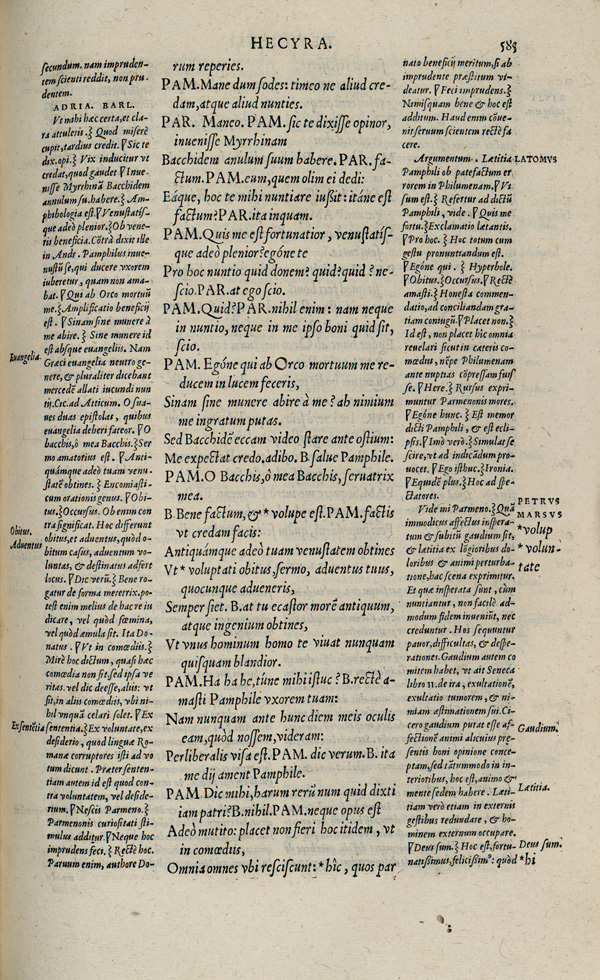 HECYRA. 585
secundum. nam impruden-
tem scienti reddit, non pru-
dentem.
ADRIA. BARL.
Vt mihi hæc certa, et cla-
ra attuleris.} Quod miserè
cupit, tardius credit. ¶Sic te
dix.opi.} Vix inducitur vt
credat, quod gaudet ¶Inue-
nisse Myrrhinā Bacchidem
annulum su.habere.} Am-
phibologia est. ¶Venustatis-
que adeò plenior.} Ob vene-
ris beneficia. Cōtrà dixit ille
in Andr. Pamphilus inue-
nustū se, qui ducere vxorem
iuberetur, quam non ama-
bat. ¶Qui ab Orco mortuū
me.} Amplificatio beneficij
est. ¶Sinam sine munere à
me abire.} Sine munere id
est absque euangeliis. Nam
Euangelia.
Græci euangelia neutro ge-
nere, & pluraliter dicebant
mercedē allati iucundi nun
tij. Cic. ad Atticum. O sua-
ues duas epistolas, quibus
euangelia deberi fateor. ¶O
bacchis, ô mea Bacchis.}Ser
mo amatorius est. ¶Anti-
quámque adeò tuam venu-
statē obtines.} Encomiasti-
cum orationis genus. ¶Obi-
tus.}Occursus. Ob enim con
Obitus.
tra significat. Hoc differunt
Aduentus
obitus, et aduentus, quòd o-
bitum casus, aduentum vo-
luntas, & destinatus adfert
locus. ¶Dic verū.} Bene ro-
gatur de forma meretrix. po-
test enim melius de hac re iu
dicare, vel quòd fœmina,
vel quòd æmula sit. Ita Do-
natus. ¶Vt in comœdiis.}
Mirè hoc dictum, quasi hæc
comœdia non sit, sed ipsa ve
ritas. vel dic deesse, aliis: vt
sit, in aliis comœdiis, vbi ni-
hil vnquā celari solet. ¶Ex
Ex sentētia
sententia.} Ex voluntate, ex
desiderio, quod linguæ Ro-
manæ corruptores isti ad vo
tum dicunt. Præter senten-
tiam autem id est quod con-
tra voluntatem, vel deside-
rium. ¶Nescis Parmeno.}
Parmenonis curiositati sti-
mulus additur. ¶Neque hoc
imprudens feci.} Rectè hoc.
Paruum enim, authore Do-
rum reperies.
PAM. Mane dum sodes: timeo ne aliud cre-
dam, atque aliud nunties.
PAR. Maneo. PAM. sic te dixisse opinor,
inuenisse Myrrhinam
Bacchidem anulum suum habere. PAR. fa-
ctum. PAM. eum, quem olim ei dedi:
Eáque, hoc te mihi nuntiare iussit: itáne est
factum? PAR. ita inquam.
PAM. Quis me est fortunatior, venustatis-
que adeò plenior? egóne te
Pro hoc nuntio quid donem? quid? quid? ne-
scio. PAR. at ego scio.
PAM. Quid? PAR. nihil enim: nam neque
in nuntio, neque in me ipso boni quid sit,
scio.
PAM. Egóne qui ab Orco mortuum me re-
ducem in lucem feceris,
Sinam sine munere abire à me? ah nimium
me ingratum putas.
Sed Bacchidē eccam video stare ante ostium:
Me expectat credo. adibo. B. salue Pamphile.
PAM. O Bacchis, ô mea Bacchis, seruatrix
mea.
B. Bene factum, & * volupe est. PAM. factis
vt credam facis:
Antiquámque adeò tuam venustatem obtines
Vt * voluptati obitus, sermo, aduentus tuus,
quocunque adueneris,
Semper siet. B. at tu ecastor morē antiquum,
atque ingenium obtines,
Vt vnus hominum homo te viuat nunquam
quisquam blandior.
PAM. Ha ha he, túne mihi istuc? B. rectè a-
masti Pamphile vxorem tuam:
Nam nunquam ante hunc diem meis oculis
eam, quòd nossem, videram:
Perliberalis visa est. PAM. dic verum. B. ita
me dij ament Pamphile.
PAM. Dic mihi, harum rerū num quid dixti
iam patri? B. nihil. PAM. neque opus est
Adeò mutito: placet non fieri hoc itidem, vt
in comœdiis,
Omnia omnes vbi resciscunt: * hîc, quos par
nato beneficij meritum, si ab
imprudente præstitum vi-
deatur. ¶Feci imprudens.}
Nimisquam bene & hoc est
additum. Haud enim cōue-
nit seruum scientem rectè fa
cere.
Argumentum. Lætitia
LATOMVS
Pamphili ob patefactum er
rorem in Philumenam. ¶Vi
sum est.} Refertur ad dictū
Pamphili, vide. ¶Quis me
fortu.}Exclamatio lætantis.
¶Pro hoc.} Hoc totum cum
gestu pronuntiandum est.
¶Egóne qui.} Hyperbole.
¶Obitus.}Occursus. ¶Rectè
amasti.} Honesta commen-
datio, ad conciliandam gra-
tiam coniugū. ¶Placet non.}
Id est, non placet hîc omnia
reuelari sicut in cæteris co-
mœdiis, nēpe Philumenam
ante nuptias cōpressam fuis
se. ¶Here.} Rursus expri-
muntur Parmenonis mores.
¶Egóne hunc.} Est memor
dicti Pamphili, & est ecli-
psis. ¶Imò verò.}Simulat se
scire, vt ad indicādum pro-
uocet. ¶Ego isthuc.}Ironia.
¶Equidē plus.} Hoc ad spe-
ctatores.
PETRVS
MARSVS
Vide mi Parmeno.} Quā
immodicus affectus inspera-
*volup
tum & subitū gaudium sit,
& lætitia ex lōgioribus do-
*volun-
tate
loribus & animi perturba-
tione, hac scena exprimitur.
Et quæ insperata sunt, cùm
nuntiantur, non facilè ad-
modum fidem inueniūt, nec
creduntur. Hos sequuntur
pauor, difficultas, & despe-
rationes. Gaudium autem co
mitem habet, vt ait Seneca
libro 11. de ira, exultationē,
exultatio tumorem, & ni-
miam æstimationem sui. Ci-
cero gaudium putat esse af-
Gaudium.
fectionē animi alicuius præ-
sentis boni opinione conce-
ptam, sed tātummodo in in-
terioribus, hoc est, animo &
mente sedem habere. Læti-
Lætitia.
tiam verò etiam in externis
gestibus redundare, & ho-
minem externum occupare.
¶Deus sum.} Hoc est, fortu-
Deus sum.
natissimus, felicissim⁹: quòd
*hi